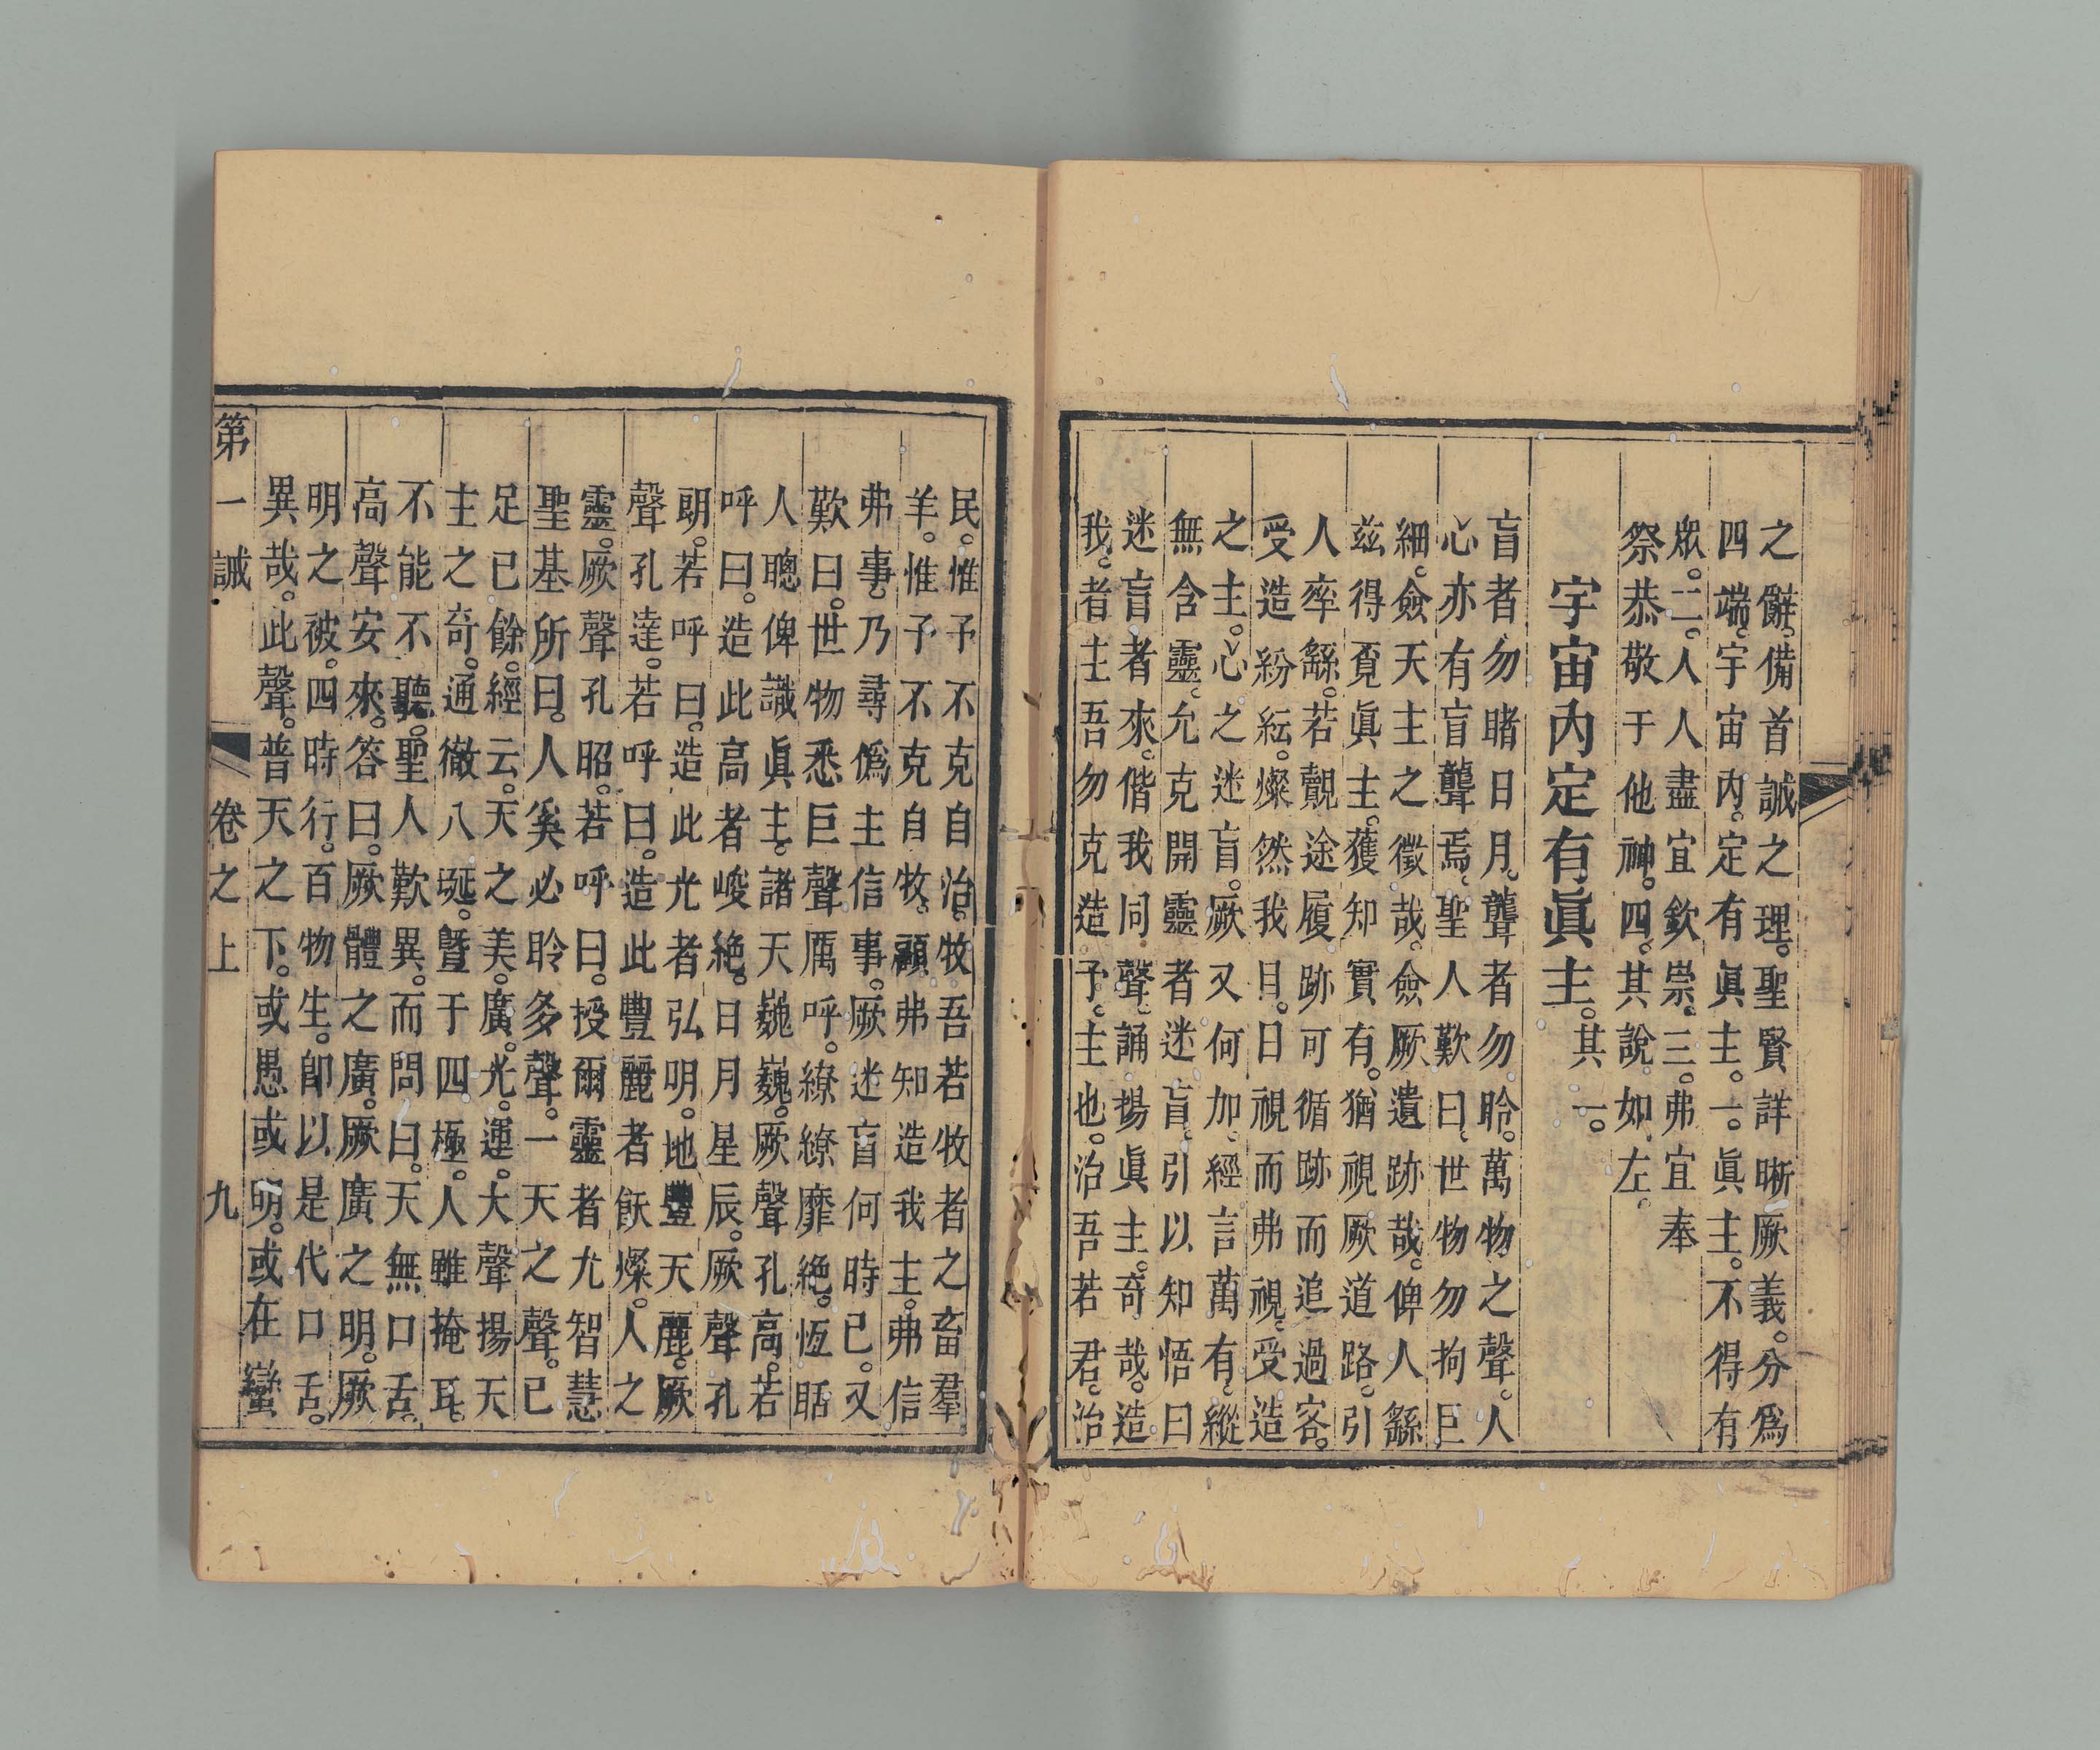 之辭備首誠之理。聖賢詳晰厥義。分爲
四端。宇宙內。定有眞主。一。眞主。不得有
眾。二。人人盡宜欽崇。三。弗宜奉
祭恭敬于他神。四。其說。如左。
宇宙內定有眞主。其一。
盲者勿睹日月。聾者勿聆。萬物之聲。人
心亦有盲聾焉。聖人歎曰。世物勿拘巨
細。僉天主之徵哉。僉厥遺跡哉。俾人繇
茲得覔眞主。獲知實有。猶視厥道路。引
人率繇。若覿途履跡可循跡而追過客。
受造紛紜。燦然我目。日視而弗視。受造
之主。心之迷盲。厥又何加。經言萬有。縱
無含靈。允克開靈者迷盲。引以知悟曰
迷盲者來。偕我同聲。誦揚眞主。奇哉。造
我。者主吾勿克造予。主也。治吾若君。治
民。惟予不克自治。牧吾若牧者之畜羣
羊。惟予不克自牧。顧弗知造我主。弗信
弗事。乃尋僞主信事。厥迷盲何時已。又
歎曰。世物悉巨聲厲呼。繚繚靡絕。恆聒
人聰俾識眞主。諸天巍巍。厥聲孔高。若
呼曰。造此高者峻絕。日月星辰。厥聲孔
朗。若呼曰。造此光者弘明。地豐天麗。厥
聲孔達。若呼曰。造此豐麗者飫燦。人之
靈。厥聲孔昭。若呼曰。授爾靈者尤智慧
聖基所曰。人奚必聆多聲。一天之聲。已
足已餘。經云。天之美。廣。光。運。大聲揚天
主之奇。通徹八埏。曁于四極。人雖掩耳。
不能不聽。聖人歎異。而問曰。天無口舌。
高聲安來。答曰。厥體之廣。厥廣之明。厥
明之被。四時行。百物生。卽以是代口舌。
異哉。此聲。普天之下。或愚或明。或在蠻
第一誡 卷之上 九